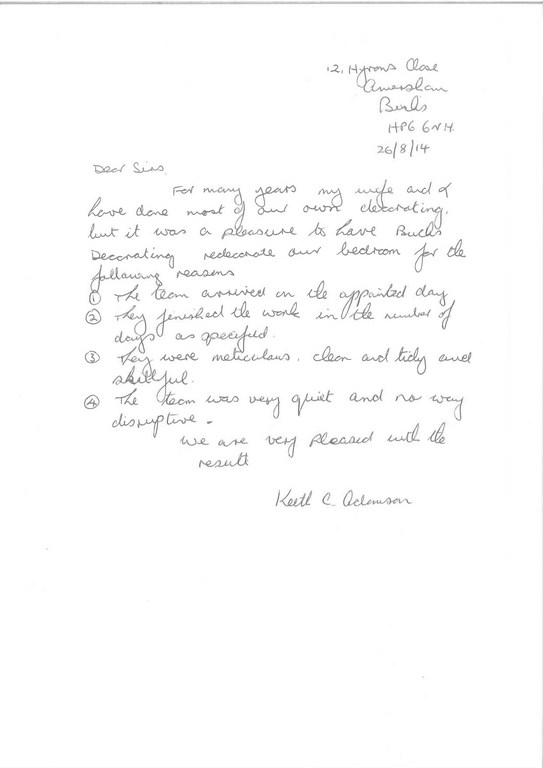 12, Hyrons Close
Amersham
Bucks
HP6 6NH
26/8/14
Dear Sirs,
For many years my wife and I
have done most of our own decorating,
but it was a pleasure to have Bucks
Decorating redecorate our bedroom for the
following reasons
① The team arrived on the appointed day
② They finished the work in the number of
days as specified.
③ They were meticulous, clean and tidy and
skillful.
④ The team was very quiet and no way
disruptive -
We are very pleased with the
result
Keith C. Adamson